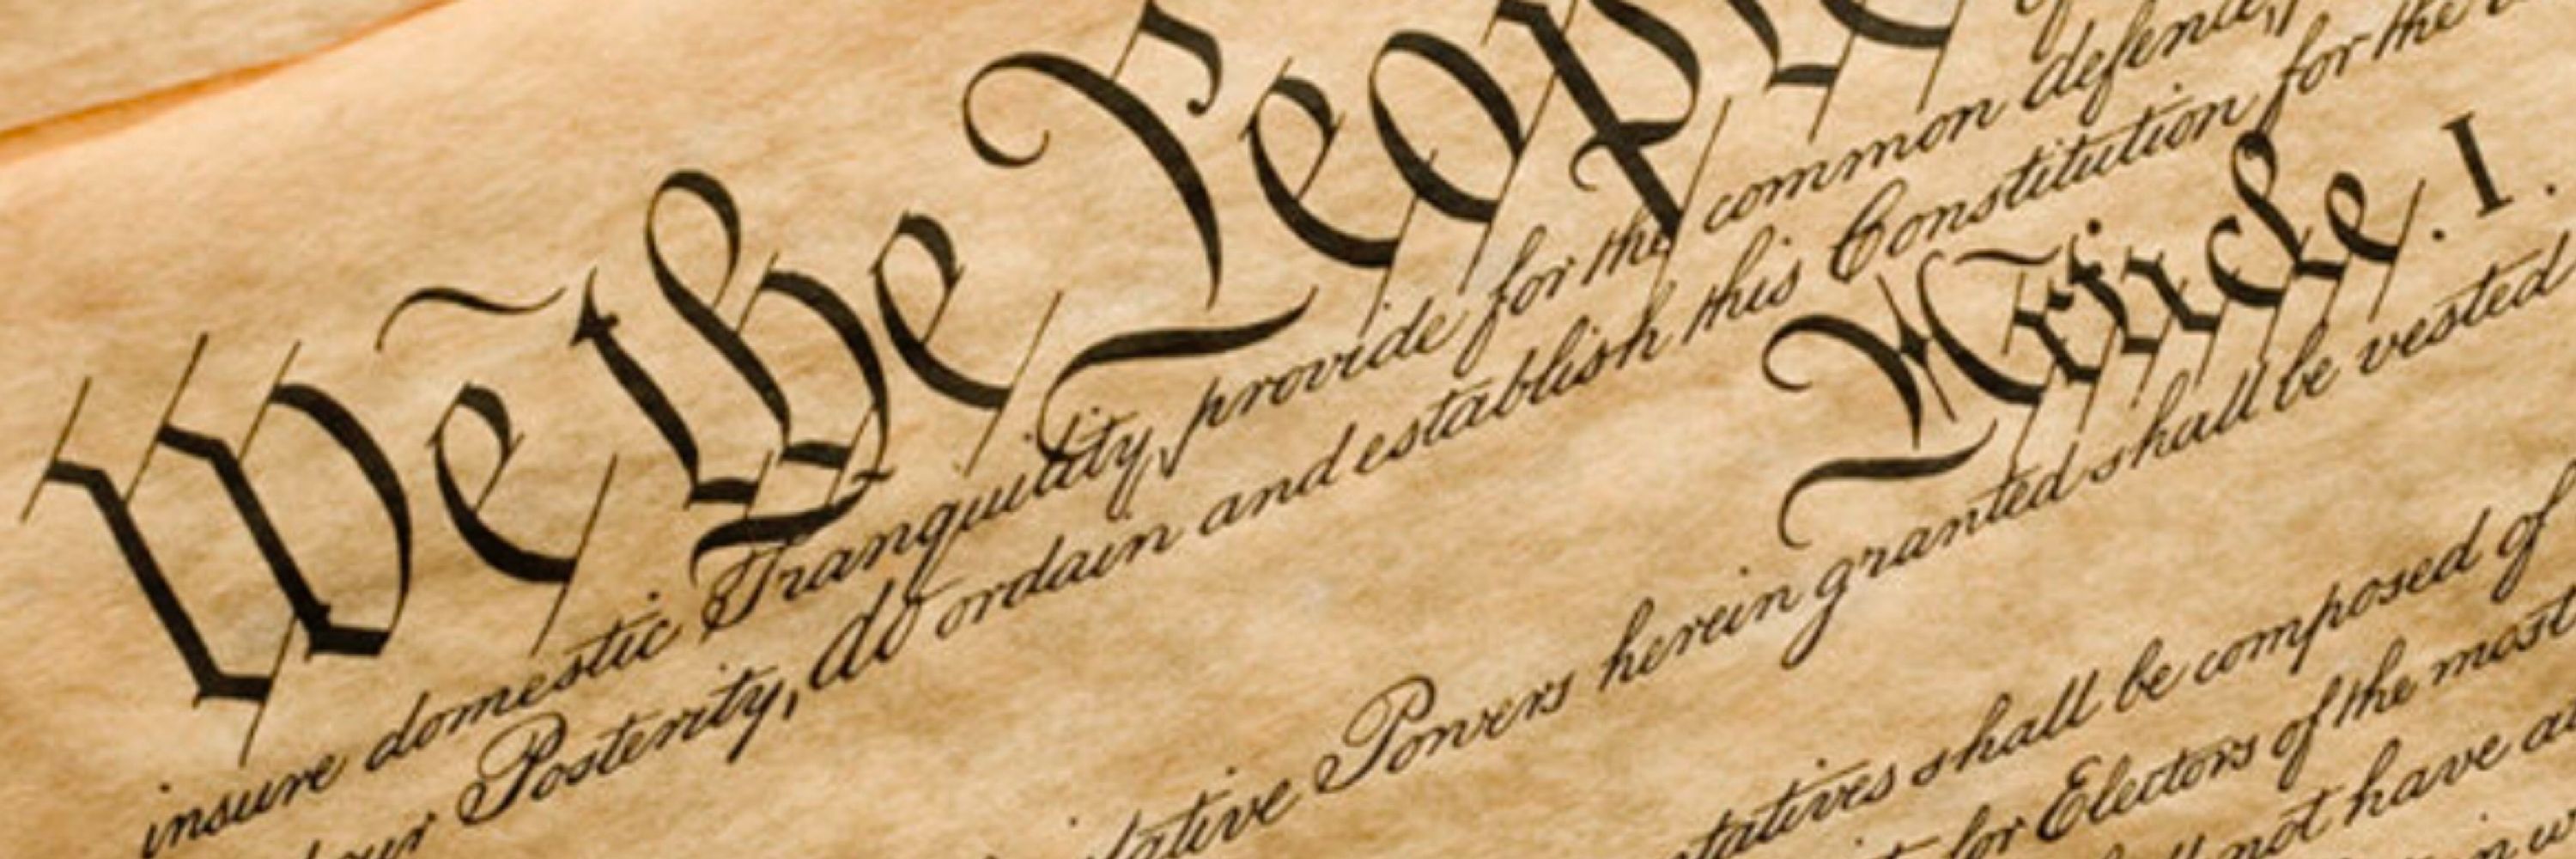 We the People
insure domestic Tranquility, provide for the common defence,
our Posterity, do ordain and establish this Constitution for the
Article. I.
Powers herein granted shall be vested
shall be composed of
for Electors of the most
not have